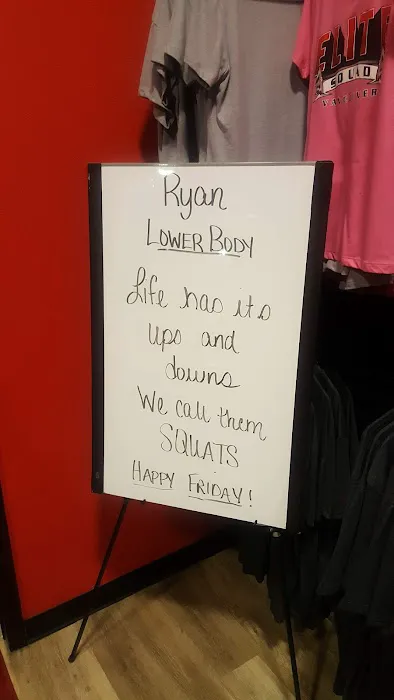 ELITE
SQUAD
VANCOUVER
Ryan
LOWER BODY
Life has its
ups and
downs
We call them
SQUATS
HAPPY FRIDAY!